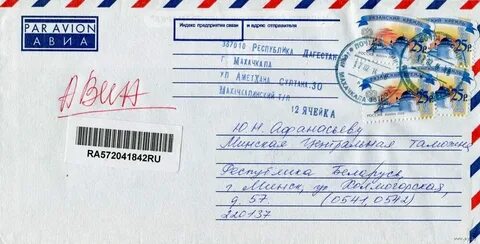 PAR AVION
АВИА
Индекс предприятия связи и адрес отправителя
367010 РЕСПУБЛИКА ДАГЕСТАН
Г. МАХАЧКАЛА
УЛ АМЕТХАНА СУЛТАНА.30
МАХАЧКАЛИНСКИЙ Т/П
12 ЯЧЕЙКА
АВИА
RA572041842RU
Ю.Н. Афанасьеву
Минская Центральная таможня
Республика Беларусь,
г. Минск, ур. Холмогорская,
д. 57. (0541, 0542)
220137
РЯЗАНСКИЙ КРЕМЛЬ
25р
25р
25р
25р
ПОЧТА
МАХАЧКАЛА
РОССИЯ